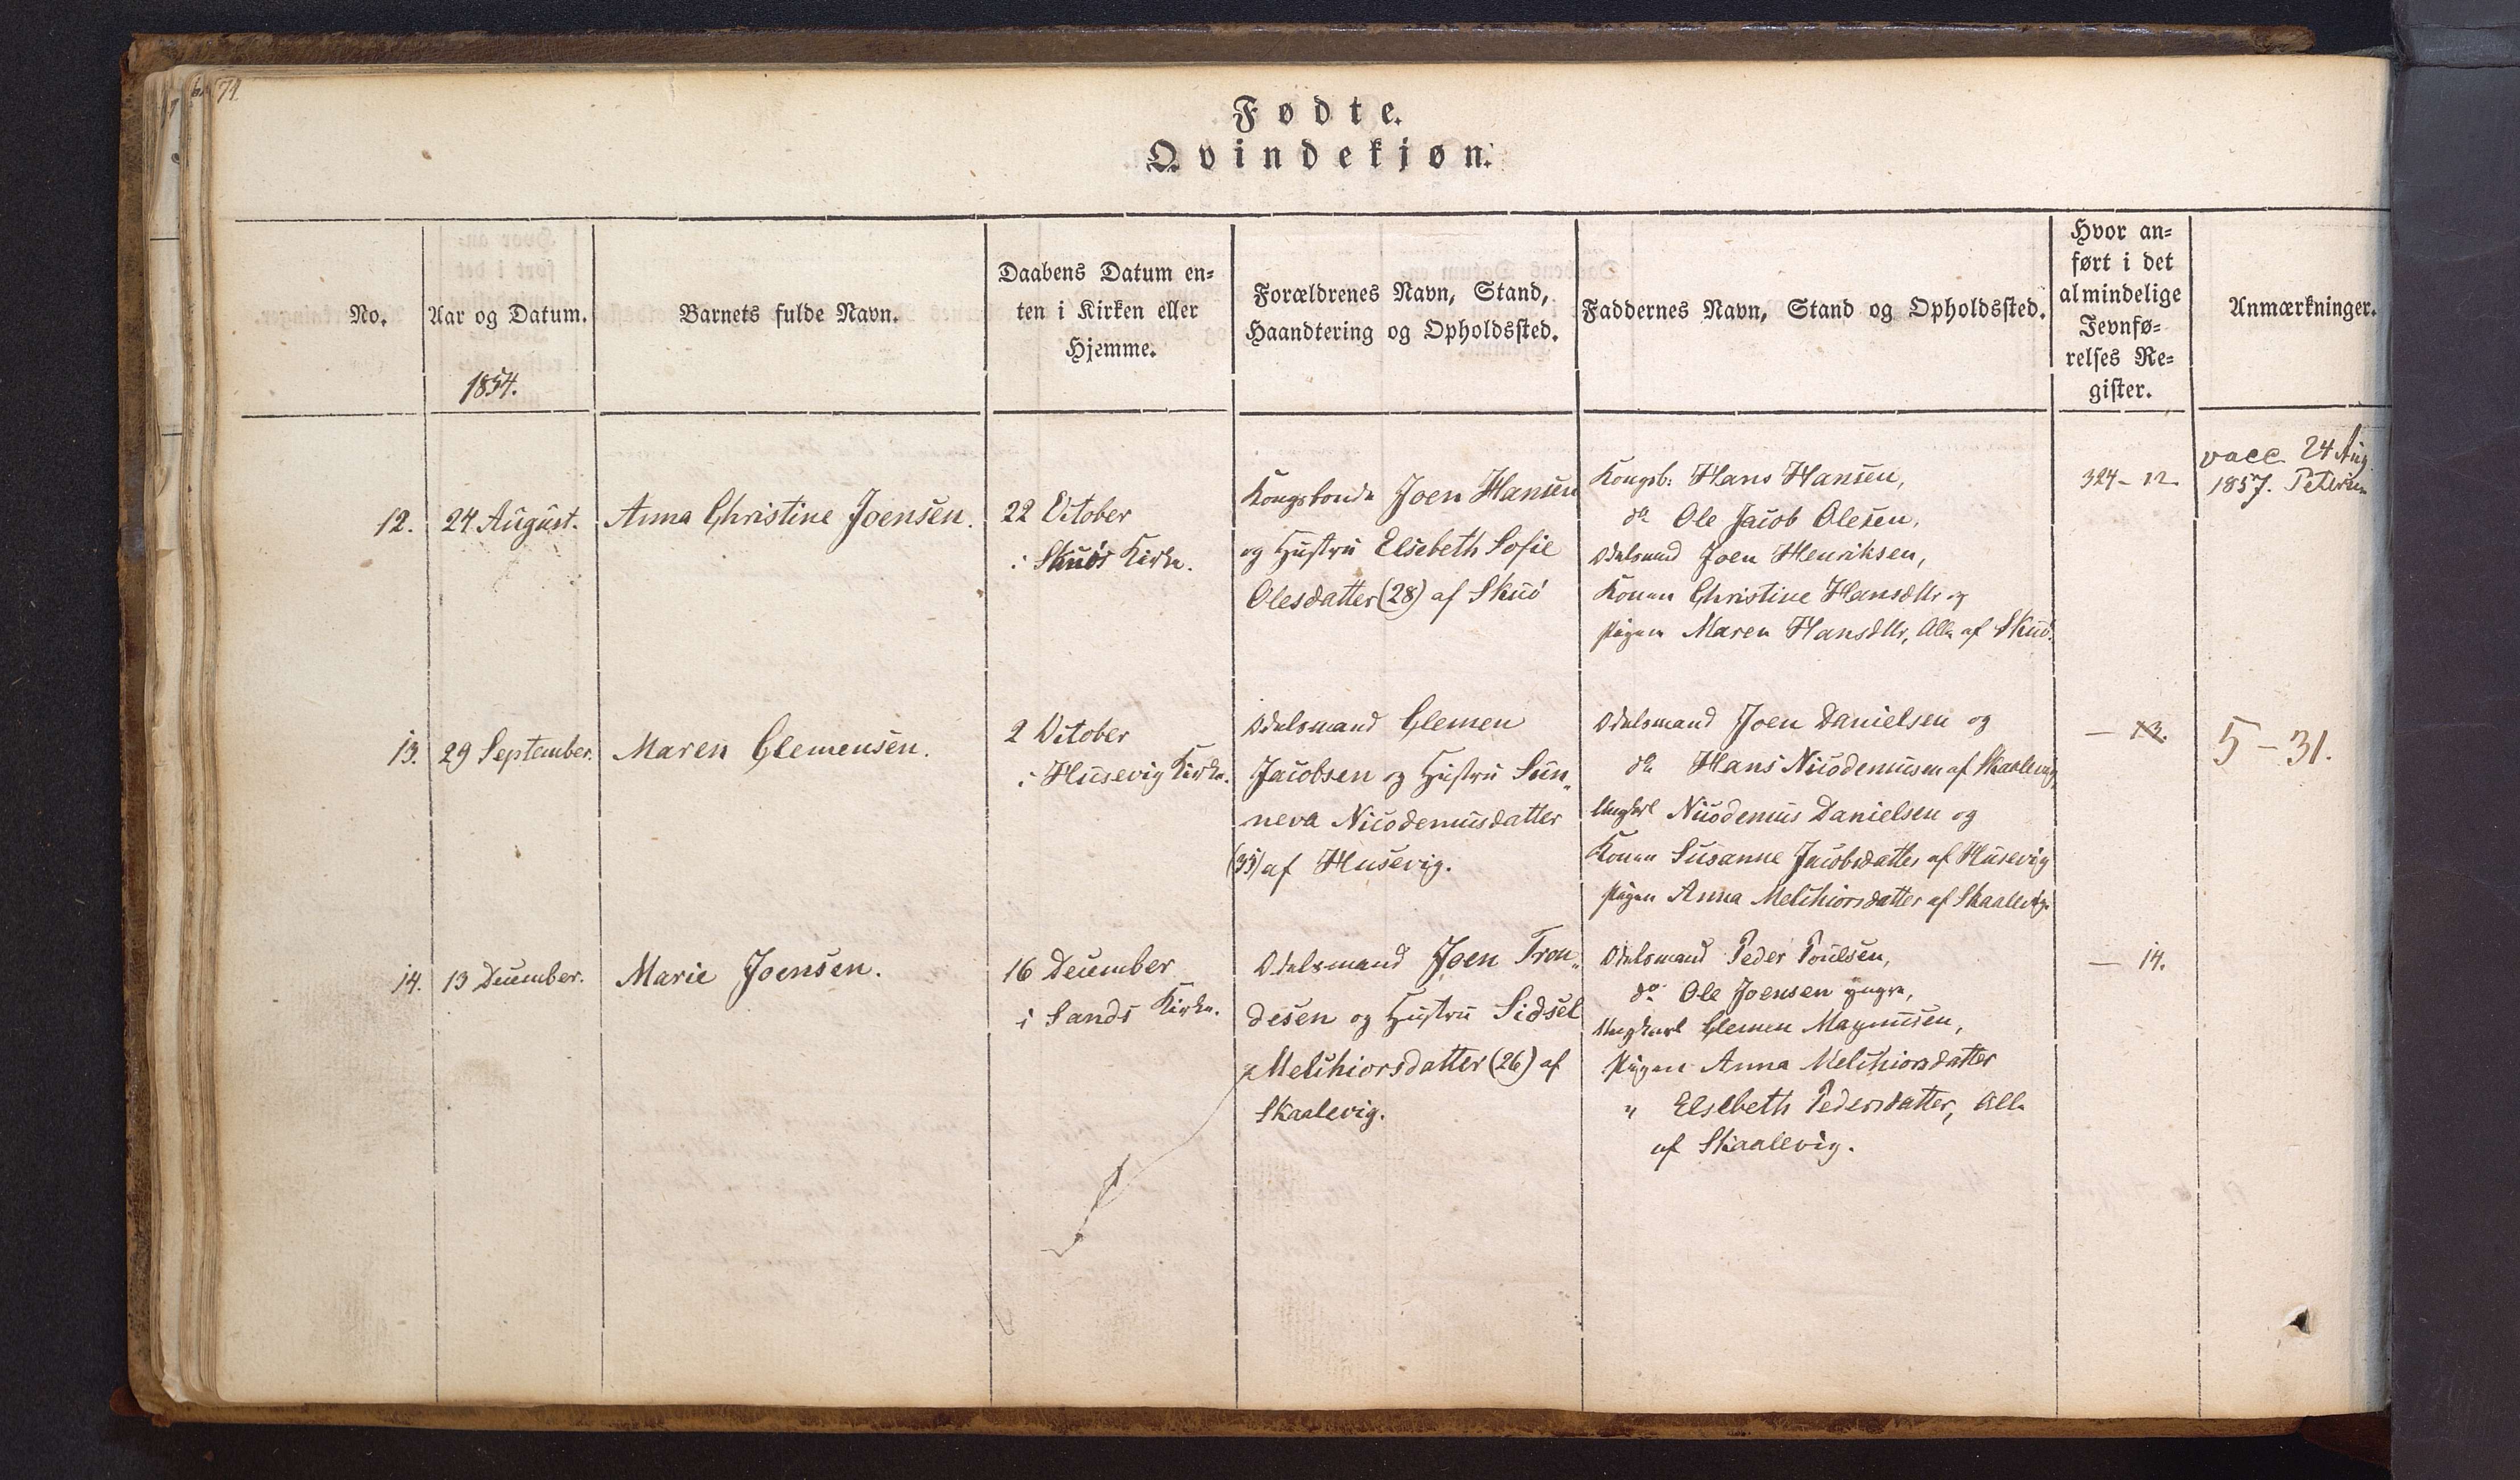 74
Fødte.
Qvindekjøn.
No.
Aar og Datum.
1854.
Barnets fulde Navn.
Daabens Datum en-
ten i Kirken eller
Hjemme.
Forældrenes Navn, Stand,
Haandtering og Opholdssted.
Faddernes Navn, Stand og Opholdssted.
Hvor an-
ført i det
almindelige
Jevnfø-
relses Re-
gister.
Anmærkninger.
12.
24 August.
Anna Christine Joensen.
22 October
i Skuös Kirke.
Kongsbonde Joen Hansen
og Hustru Elsebeth Sofie
Olesdatter (28) af Skuö
Kongsb: Hans Hansen,
do Ole Jacob Olesen,
Odelsmand Joen Henriksen,
Konen Christine Hansdttr og
Pigen Maren Hansdttr, Alle af Skuö.
324 - 12
vacc. 24 Aug.
1857. Petersen
13.
29 September.
Maren Clemensen.
2 October
i Husevig Kirke.
Odelsmand Clemen
Jacobsen og Hustru Sun„
neva Nicodemusdatter
(35) af Husevig.
Odelsmand Joen Danielsen og
do Hans Nicodemusen af Skaalevig,
Ungkarl Nicodemus Danielsen og
Konen Susanne Jacobsdatter af Husevig
Pigen Anna Melchiorsdatter af Skaalevig.
— 13.
5 - 31.
14.
13 December.
Marie Joensen.
16 December
i Sands Kirke.
Odelsmand Joen Tron„
desen og Hustru Sidsel
Melchiorsdatter (26) af
Skaalevig.
Odelsmand Peder Poulsen,
do Ole Joensen yngre,
Ungkarl Clemen Magnusen,
Pigen Anna Melchiorsdatter
" Elsebeth Pedersdatter, Alle
af Skaalevig.
— 14.